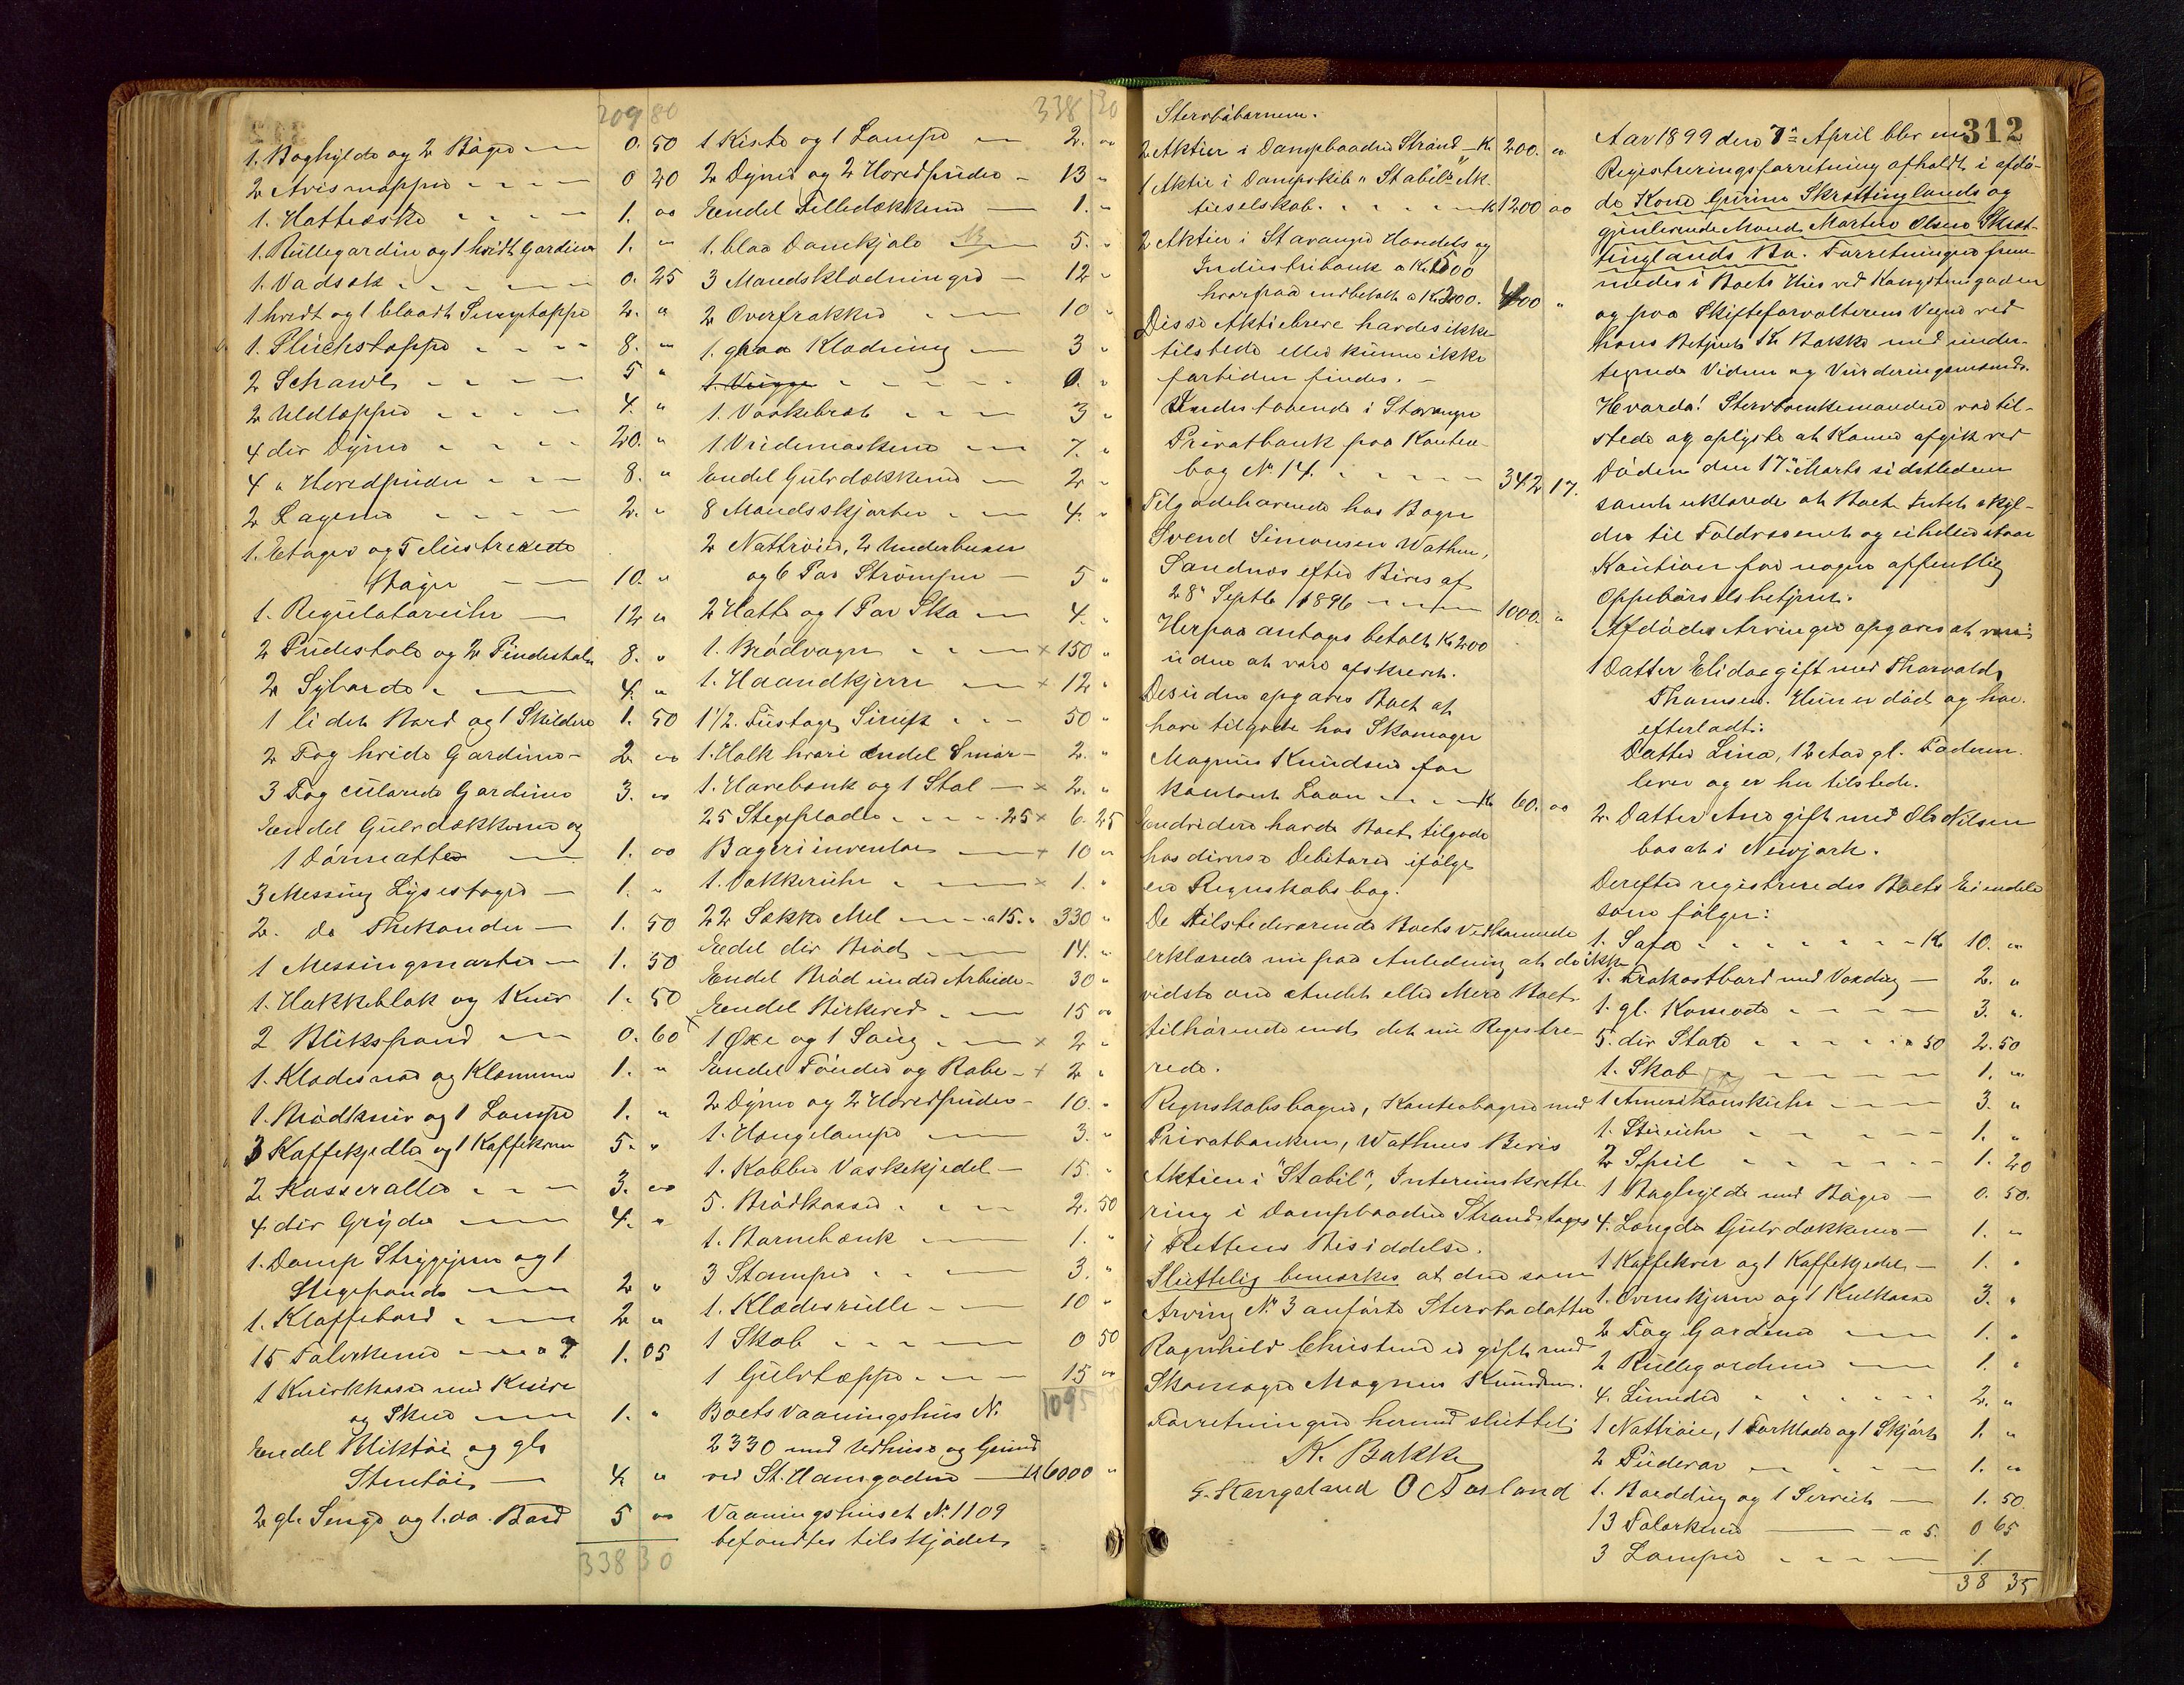 209 80
1. Boghylde og 2 Bøger 0. 50
2 Avismapper 0 20
1. Hatteæske 1. 00
1. Rullegardin og 1 hvidt Gardin 1. "
1. Vadsæk 0. 25
1 hvidt og 1 blaadt Sengetæppe 2. "
1. Plüchstæppe 8. "
2 Schawl 5 "
2 Uldtæpper 4. "
4 div Dyner 20. "
4 " Hovedpuder 8. "
2 Lagener 2. "
1. Etager og 5
Stager 10. "
1. Regulatoruhr 12 "
2 Pudestole og 2 Pindestole 8. "
2 Syborde 4. "
1 lidet Bord og 1 Skilderi 1. 50
2 Fag hvide Gardiner 2 00
3 Fag culørede Gardiner 3. 00
Endel Gulvdækkener og
1 Dørmatte 1. 00
3 Messing Lysestager 1. "
2. do Thekander 1. 50
1 Messingmorter 1. 50
1. Hakkeblok og Kniv 1. 50
2 Blikspand 0. 60
1. Klædesnor og Klemmer 1. "
1. Brødkniv og 1 Lampe 1. "
3 Kaffekjedler og 1 Kaffekværn 5. "
2 Kasseroller 3. 00
4 div Gryder 4. "
1. Damp Strygejern og 1
Stegepande 2 "
1. Klaffebord 2 "
15 Tallerkener a 7 1. 05
1 Knivkasse med Knive
og Skeer 1. "
Endel Bliktøi og gl.
Stentøi 4. "
2 gl. Senge og 1 do. Bord 5 00
338 30
338 30
1 Kiste og 1 Lampe 2. 00
2 Dyner og 2 Hovedpuder 13 "
Endel Filledækkener 1. "
1. blaa Damekjole 5. "
3 Mandsklædninger 12 "
2 Overfrakker 10 "
1. graa Klædning 3 "
1. Vugge 6. "
1. Vaskebræt 3 "
1 Vridemaskine 7. "
Endel Gulvdækkener 2 "
8 Mandsskjorter 4. "
2 Nattrøier, 2 Underbuxer
og 6 Par Strømper 5 "
2 Hatte og 1 Par Sko 4. "
1. Brødvogn x 150 "
1. Haandkjerre x 12 "
1 1/2. Fustage Sirup 50 "
1. Halk hvori endel Smør 2. "
1. Høvebænk og 1 Stol x 2. "
25 Stegeplader 25 x 6. 25
Bageriinventar + 10 "
1. Vækkeruhr x 1. "
22 Sække Mel a 15. " 330 "
Endel div Brød 14. "
Endel Brød under Arbeide 30 "
Endel Birkeved 15 00
1 Øxe og 1 Saug x 2 "
Endel Tønder og Kabe + 2 "
2 Dyner og 2 Hovedpuder 10. "
1. Hængelampe 3. "
1. Kobber Vaskekjedel 15. "
5. Brødkasser 2. 50
1. Barnebænk 1. "
3 Stamper 3. "
1. Klædesrulle 10 "
1 Skab 0 50
1 Gulvtæppe 15 00
1095
Boets Vaaningshus No
2330 med Udhuse og Grund
ved St. Hansgaden 16000 "
Vaaningshuset No 1109
befandtes tilskjødet
Stervbobarnene.
2 Aktier i Dampbaaden Strand K 200. 00
1 Aktie i Dampskib "Stabil" Ak.
tieselskab. K 1200 00
2 Aktier i Stavanger Handels og
Industribank a Kr 500
hvorpaa indbetalt a Kr 200. 400 "
Disse Aktiebreve havdes ikke
tilstede eller kunne ikke
fortiden findes.
Indestaaende i Stavanger
Privatbank paa Kontra-
bog No 14. 342 17.
Tilgodehavende hos Bager
Svend Simonsen Wathne,
Sandnes efter Bevis af
28 Septb 1896 1000. "
Herpaa antages betalt Kr 200
uden at være afskrevet.
Desuden opgaves Boet at
have tilgode hos Skomager
Magnus Knudsen for
kontant Laan Kr 60. 00
Endvidere havde Boet tilgode
hos diverse Debitorer ifølge
en Regnskabsbog.
De tilstedeværende Boets vedkommende
erklærede nu paa Anledning at de ikke
vidste om Andet eller Mere Boet
tilhørende end det nu Registre-
rede.
Regnskabsbogen, Kontrabogen med
Privatbanken, Wathnes Bevis
Aktien i "Stabil", Interimskvitte-
ring i Dampbaaden Strand tages
i Rettens Besiddelse.
Sluttelig bemærkes at den som
Arving No 3 anførte Stervbodatter
Ragnhild Christine er gift med
Skomager Magnus Knudsen.
Forretningen hermed sluttet:
K. Bakke
G. Stangeland O A Aarland
312
Aar 1899 den 7de April blev en
Registreringsforretning afholdt i afdø-
de Kone Gurine Skrettinglands og
gjenlevende Mand Martin Olsen Skret-
tinglands Bo. Forretningen frem-
medes i Boets Hus ved Kongstengaden
og paa Skifteforvalterens Vegne ved
hans Betjent K Bakke med under-
tegnede Vidner og Vurderingsmænd.
Hvorda! Stervboenkemanden var til-
stede og oplyste at Konen afgik ved
Døden den 17 Marts sidstleden
samt erklærede at Boet Intet skyl-
der til Faldsement og eiheller staar
Kaution for nogen offentlig
Oppebørselsbetjent.
Afdødes Arvinger opgaves at være:
1 Datter Elida gift med Thorvald
Thomsen. Hun er død og har
efterladt:
Datter Lina, 12 Aar gl. Faderen
lever og er her tilstede.
2. Datter Ane gift med Ole Nilsen
bosat i Newjork.
Derefter registreredes Boets Eiendele
som følger:
1. Sofa K 10. "
1. Frokostbord med Voxdug 2. "
1. gl. Komode 3. "
5. div Stole a 50 2. 50
1. Skab 1. "
1 Amerikanskuhr 3. "
1. Stueuhr 1. "
2 Speil 1. 20
1 Boghylde med Bøger 0. 50.
4. Længder Gulvdækkener 1. "
1 Kaffekvær og 1 Kaffekjedel 1. "
1. Ovnsskjerm og 1 Kulkasse 3. "
2 Fag Gardiner 1. "
2 Rullegardiner 1. "
4. Linneder 2. "
1 Nattrøie, 1 Forklæde og 1 Skjørt 1. "
2 Pudevar 1. "
1. Borddug og 1 Serviet 1. 50
13 Tallerkener a 5. 0 65
3 Lamper 1.
38 35